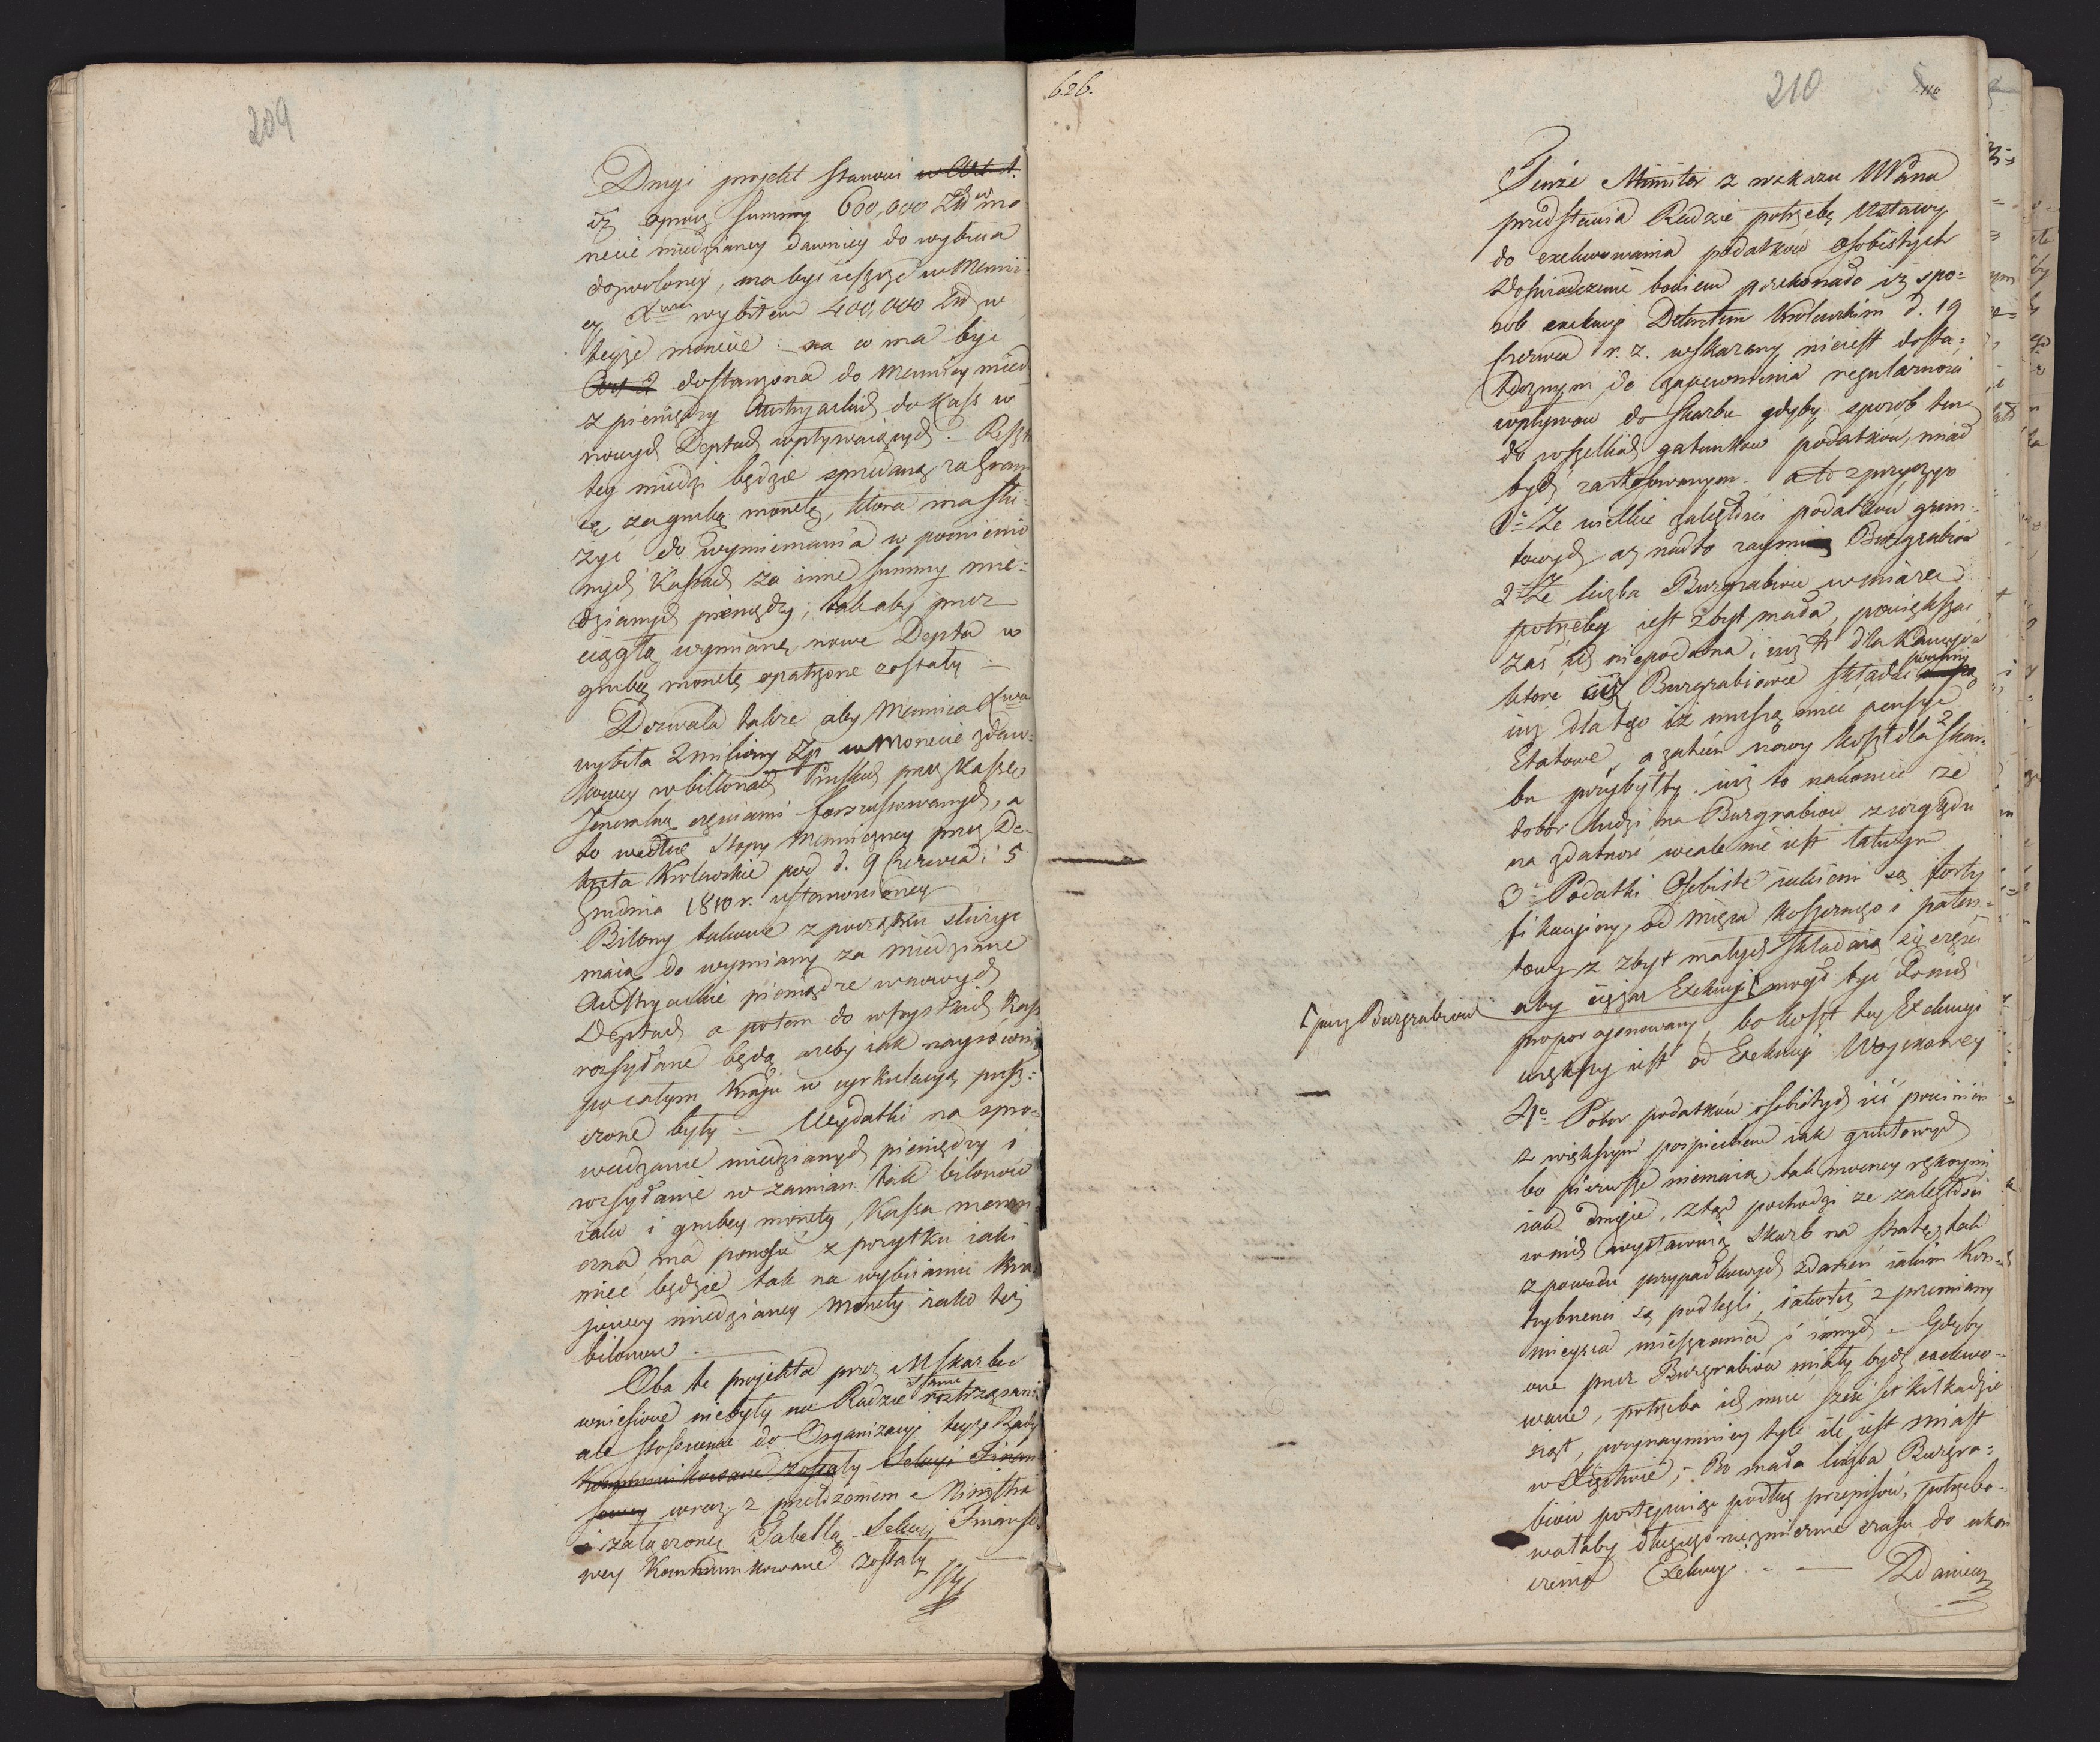 209
Drugi projekt stanowi w Art. 1.
iż oprócz summy 600,000 Zł w mo
necie miedzianey dawniey do wybicia
dozwoloney, ma być ieszcze w Menni-
cy Xwa wybitem 400,000 Zł w
teyże monecie: na co ma być
Art 2 dostarczona do Mennicy miedź
z pieniędzy Austryackich do Kass w
nowych Deptach wpływaiących. Reszta
tey miedzi będzie sprzedana za grani
cę, za grubą monetę, która ma słu-
żyć do wymieniania w pomienio
nych Kassach za inne summy mie-
dzianych pieniędzy; tak aby przez
ciągłą wymianę nowe Depta w
grubą monetę opatrzone zostały.
Dozwala także, aby Mennica Xwa
wybiła 2 miliony Zp w Monecie zdaw-
kowey w bilonach Pruskich przez Kassę
Jeneralną częściami forszusowanych, a
to wedłuc stopy Menniczney przez De-
kreta Królewskie pod d. 9 Czerwca i 5
Grudnia 1810 r. ustanowioney
Bilony takowe z początku służyć
maią do wymiany za miedziane
Austryackie pieniądze w nowych
Deptach a potem do wszystkich Kass
rozsyłane będą, ażeby iak nayrówniey
po całym Kraju w cyrkulacyą pusz-
czone były — Wydatki na spro-
wadzanie miedzianych pieniędzy i
rozsyłanie w zamian tak bilonów
iako i grubey monety, Kassa menni
czna ma ponosić z pożytku iaki
mieć będzie tak na wybiianiu kra-
jowey miedzianey monety iako też
bilonów.
Oba te projekta przez M Skarbu
wniesione nie były na Radzie roztrząsane
ale stosownie do Organizacyi teyże Rady
Kommunikowane zostały Sekcyi Finan
sowey wraz z przełożeniem Ministra
i załączoną Tabellą Sekcyi Finanso
wey Kommunikowane zostały
626.
210
Tenże Minister z wskazu WPana
przedstawia Radzie potrzebę Ustawy
do exekwowania podatków osobistych
Doświadczenie bowiem przekonało iż spo-
sob exekucyi Dekretem Królewskim d. 19
Czerwca r. z. wskazany nie iest dosta-
tecznym do zapewnienia regularności
wpływow do Skarbu gdyby sposób ten
do wszelkich gatunkow podatków, miał
bydź zastosowanym. A to z przyczyn
1o Że wielkie zaległości podatków grun-
towych aż nadto zaymuią Burgrabiow
2o Że liczba Burgrabiow w miarę
potrzeby iest zbyt mała, powiększać
zaś ich niepodobna, iuż to dla Kaucyów
które ciż Burgrabiowie składać powinni
iuż dla tego iż muszą mieć pensye
Etatowe, a zatem nowy koszt dla Skar-
bu przybyłby iuż to nakoniec że
dobór ludzi na Burgrabiow z względu
na zdatność wcale nie iest łatwym
3o Podatki Osobiste iakiemi są forty
fikacyiny, od mięsa koszernego i paten-
towy z zbyt małych składaią się części
aby ciężar Exekucyi mógł być do nich
przez Burgrabiow
proporcyonowany, bo koszt tey Exekucyi
większy iest od Exekucyi Woyskowey
4o Pobor podatków osobistych iść powinien
z większym pospiechem iak gruntowych
bo pierwsze niemaią tak mocney rękoymi
iak drugie, ztąd pochodzi że zaległości
w nich wystawuią Skarb na stratę, tak
z powodu przypadkowych zdarzeń iakim Kon-
trybuenci są podlegli, iakoteż z przemiany
mieysca mieszkania, i innych — Gdyby
one przez Burgrabiow miały bydź exekwo-
wane, potrzeba ich mieć sześć set kilkadzie
siąt, przynaymniey tyle ile iest miast
w Xięstwie, — Bo mała liczba Burgra-
biow postępuiąc podług przepisow, potrzebo-
wałaby długiego niezmiernie czasu do ukoń
czenia Exekucyi. —
Zdaniem